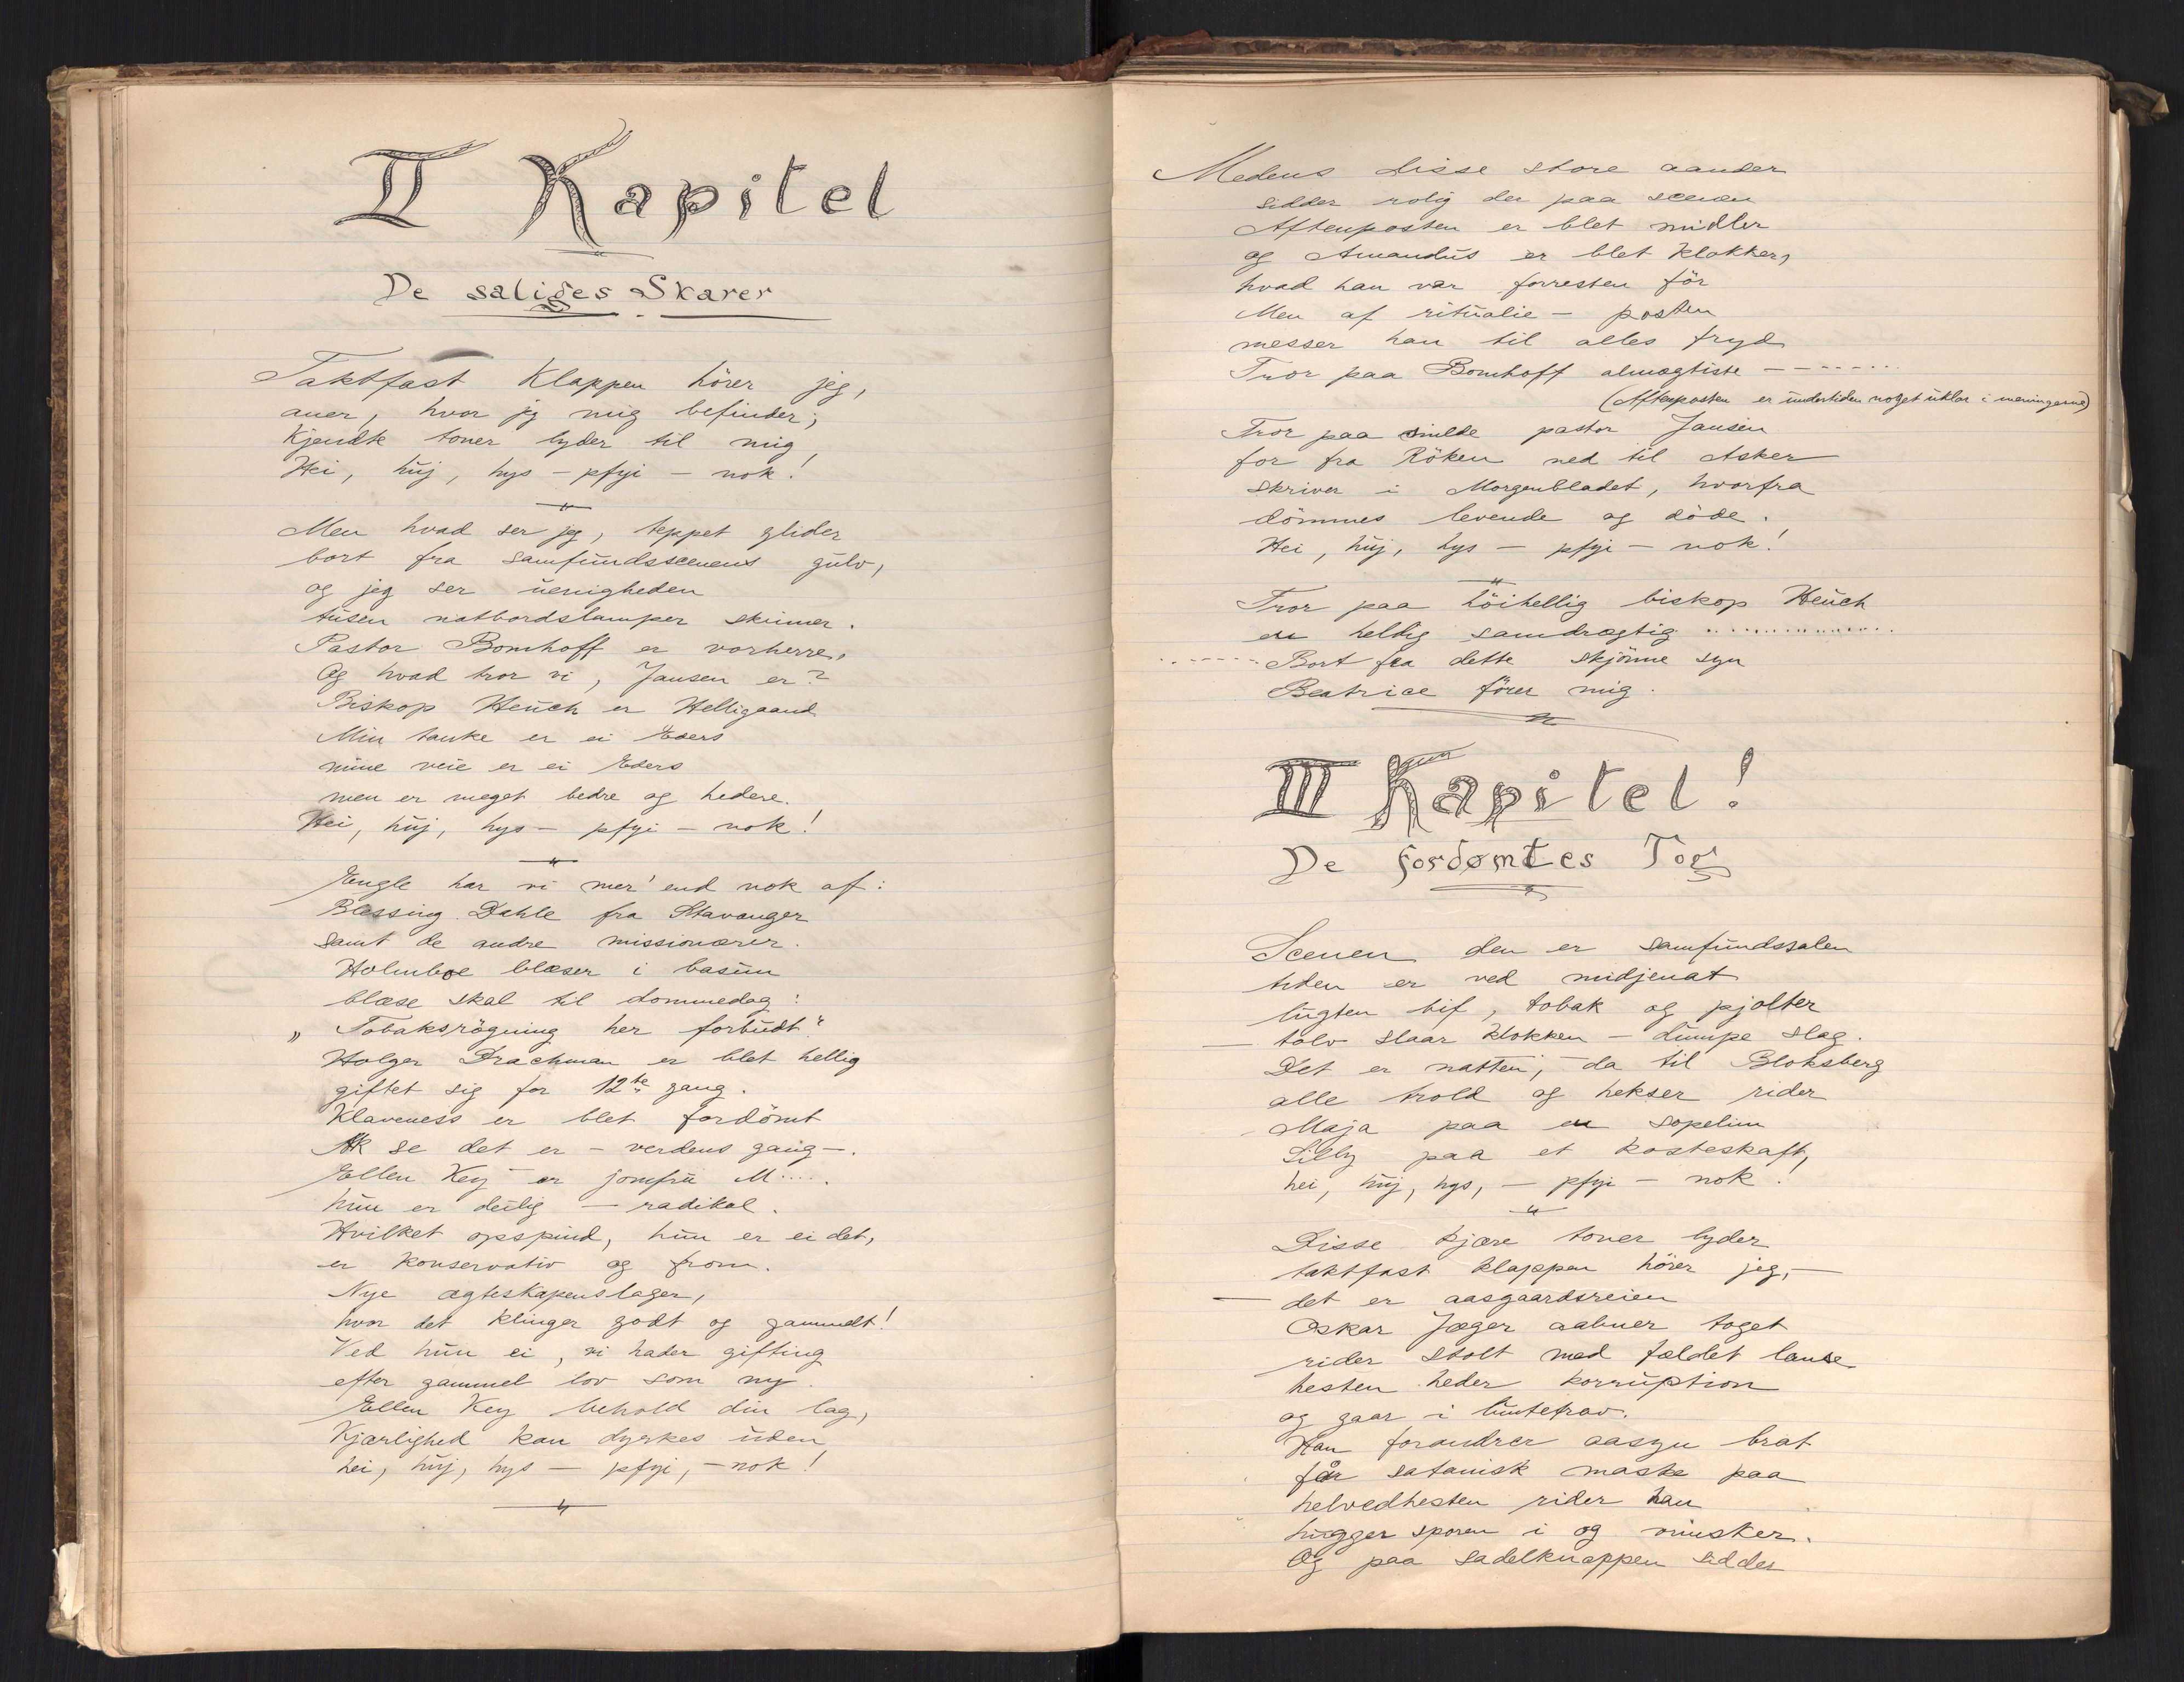 II Kapitel
De saliges Skarer
Taktfast Klappen hörer jeg,
aner, hvor jeg mig befinder;
Kjendte toner lyder til mig
Hei, huj, hys - pfyi - nok!
Men hvad ser jeg, teppet glider
bort fra samfundsscenens gulv,
og jeg ser uenigheden
tusen natbordslamper skinner.
Pastor Bomhoff er vorherre,
Og hvad tror vi, Jansen er?
Biskop Heuch er Helligaand
Min tanke er ei Eders
mine veie er ei Eders
men er meget bedre og hedere.
Hei, huj, hys - pfyi - nok!
Engle har vi mer' end nok af:
Blessing Dahle fra Stavanger
samt de andre missionærer.
Holmboe blæser i basun
blæse skal til dommedag:
„Tobaksrögning her forbudt"
Holger Drachman er blet hellig
giftet sig for 12te gang.
Klaveness er blet fordömt
Ak se det er - verdens gang -.
Ellen Key er jomfru M.....
hun er deilig - radikal.
Hvilket opspind, hun er ei det,
er konservativ og from.
Nye ægteskapenslager,
hvor det klinger godt og gammelt!
Ved hun ei, vi hader gifting
efter gammel lov som ny.
Ellen Key behold din lag,
Kjærlighed kan dyrkes uden
hei, huj, hys - pfyi, - nok!
Medens disse store aander
sidder rolig der paa scenen
Aftenposten er blet midler
og Amandus er blet klokker,
hvad han var forresten för
Men af ritualie - posten
messer han til alles fryd
Tror paa Bomhoff almægtiste -------
(Aftenposten er undertiden noget uklar i meningerne)
Tror paa milde pastor Jansen
for fra Röken ned til Asker
skriver i Morgenbladet, hvorfra
dömmes levende og döde.
Hei, huj, hys - pfyi - nok!
Tror paa höihellig biskop Heuch
en heldig samdrægtig ..............
....... Bort fra dette skjönne syn
Beatrice förer mig.
III Kapitel!
De fordømtes Tog
Scenen den er samfundssalen
tiden er ved midjenat
lugten bif, tobak og pjolter
- tolv slaar klokken - dumpe slag.
Det er natten, da til Bloksberg
alle trold og hekser rider
Maja paa en sopelim
Lilly paa et kosteskaft,
hei, huj, hys, - pfyi - nok!
Disse kjære toner lyder
taktfast klappen hörer jeg, -
- det er aasgaardsreien
Oskar Jæger aabner toget
rider stolt med fældet lanse
hesten heder korruption
og gaar i luntetrav.
Han forandrer aasyn brat
får satanisk maske paa
helvedhesten rider han
hugger sporen i og vrinsker.
Og paa sadelknappen sidder